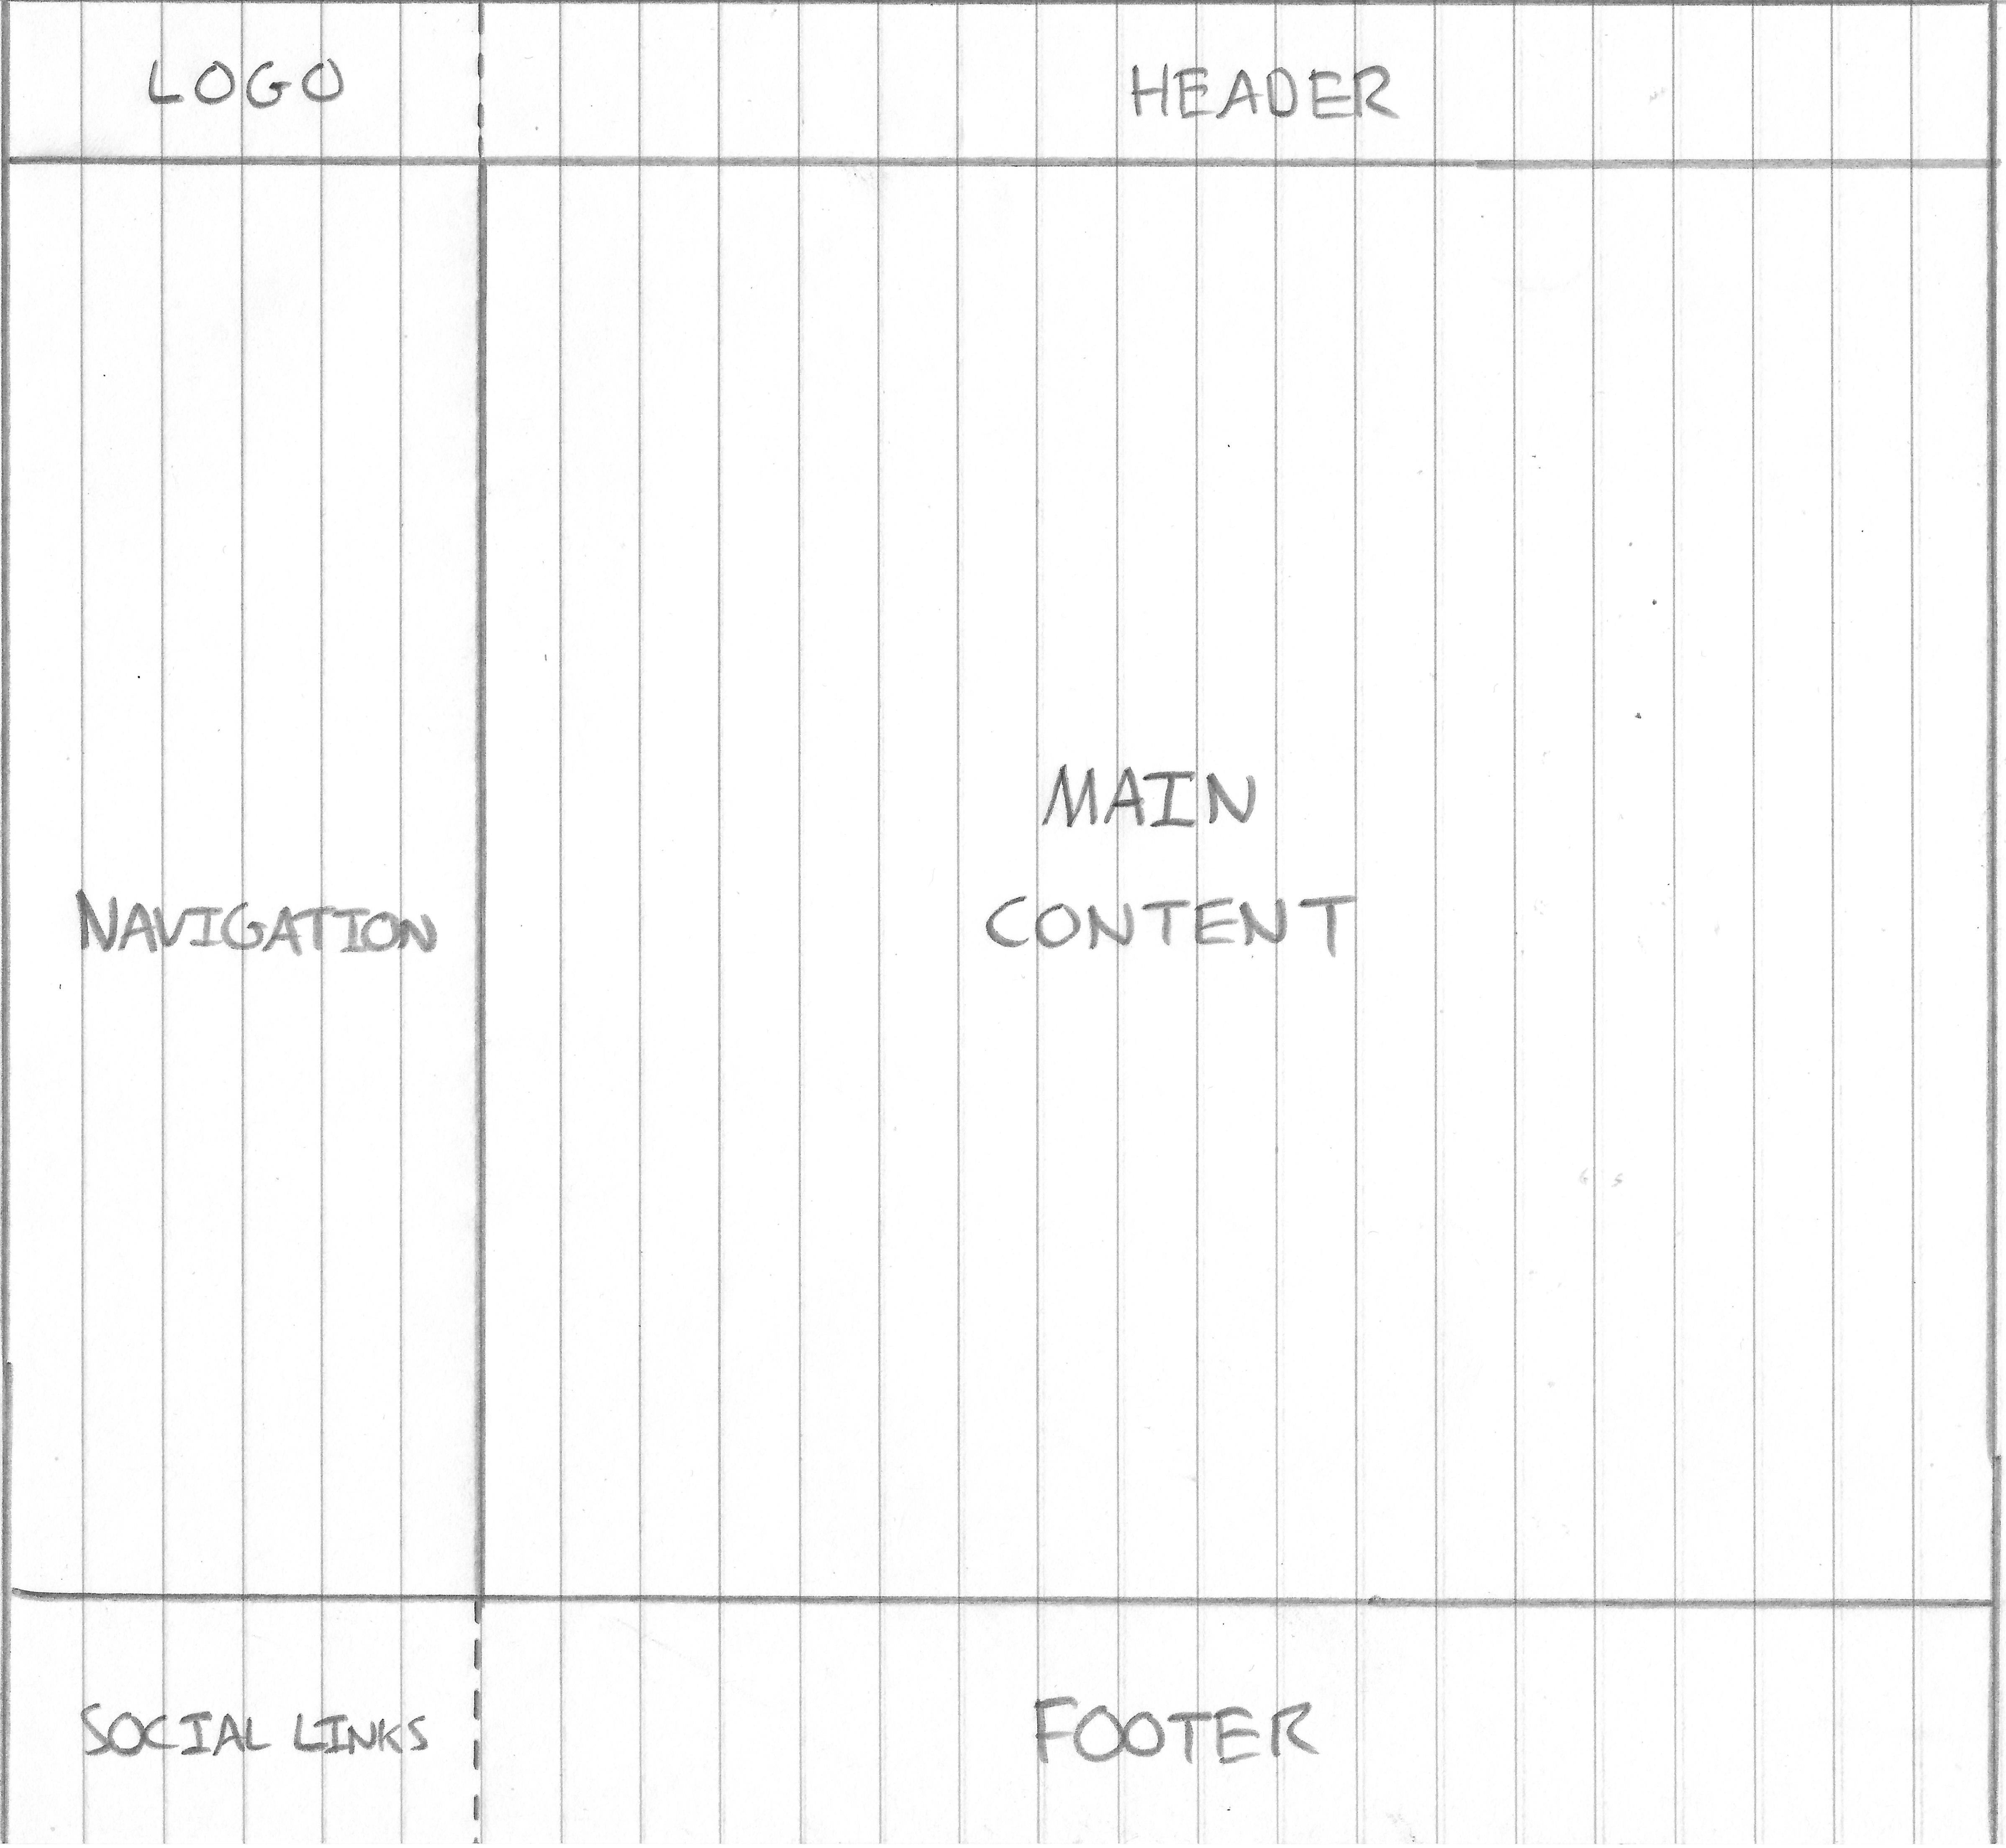 LOGO
HEADER
NAVIGATION
MAIN
CONTENT
SOCIAL LINKS
FOOTER